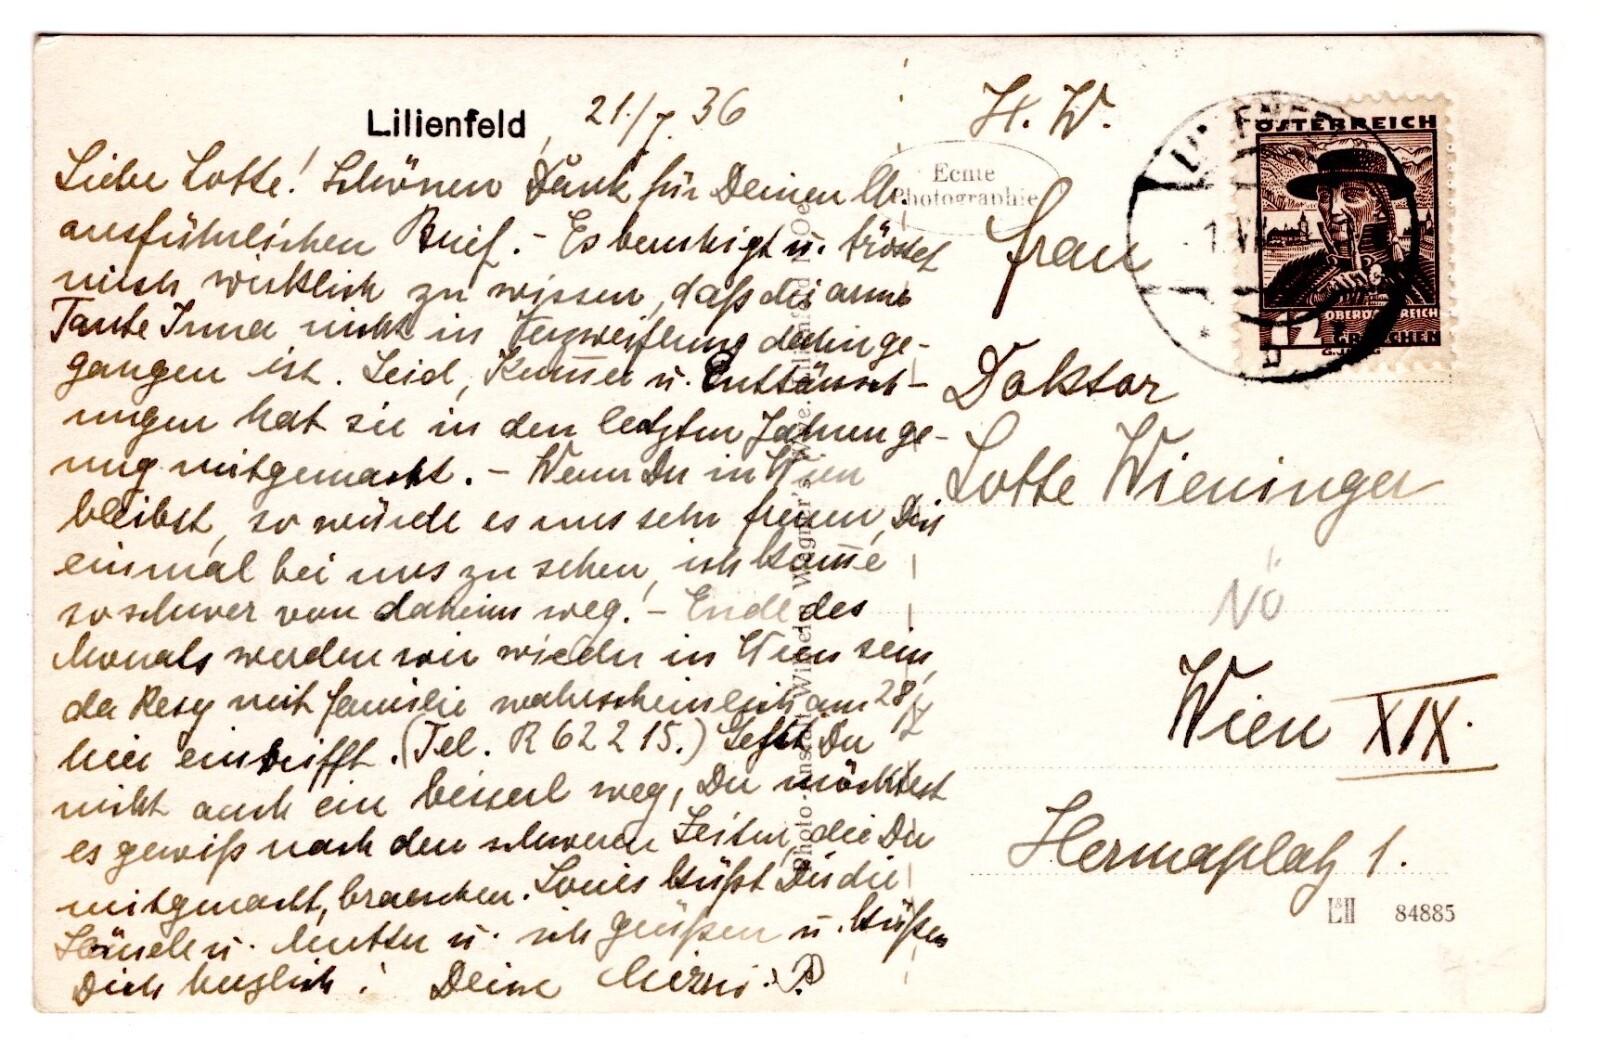 Lilienfeld, 21./7. 36
Liebe Lotte! Schönen Dank für Deinen lb.
ausführlichen Brief. - Es beruhigt u. tröstet
mich wirklich zu wissen, daß die arme
Tante Irma nicht in Verzweiflung dahinge-
gangen ist. Leid, Kum̅er u. Enttäusch-
ungen hat sie in den letzten Jahren ge-
nug mitgemacht. - Wenn Du in Wien
bleibst, so würde es uns sehr freuen, Dich
einmal bei uns zu sehen, ich kom̅e
so schwer von daheim weg. - Ende des
Monats werden wir wieder in Wien sein,
da Resy mit Familie wahrscheinlich am 28/
hier eintrifft. (Tel. R 62 2 15.) Gehst Du
nicht auch ein bisserl weg, Du möchtest
es gewiß nach den schweren Zeiten, die Du
mitgemacht, brauchen. Louis küßt Dir die
Hände u. Mutter u. ich grüßen u. küssen
Dich herzlich! Deine Mizzi.
H. W.
Echte
Photographie
Frau
Doktor
Lotte Wieninger
NÖ
Wien XIX.
Hermaplatz 1.
L&H 84885
ÖSTERREICH
OBERÖSTERREICH
12 GROSCHEN